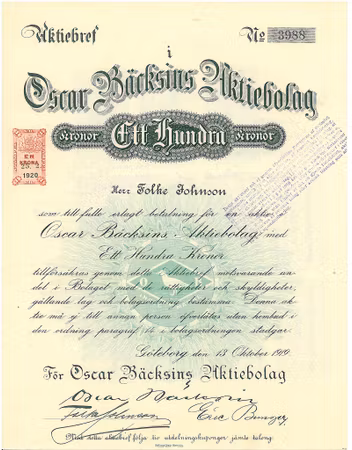 Aktiebref
No 3988
i
Oscar Bäcksins Aktiebolag
Kronor Ett Hundra Kronor
EN
KRONA
1920
Herr Folke Johnson
som till fullo erlagt betalning för en aktie i
Oscar Bäcksins Aktiebolag med
Ett Hundra Kronor
tillförsäkras genom detta Aktiebref motsvarande an-
del i Bolaget med de rättigheter och skyldigheter,
gällande lag och bolagsordning bestämma. Denna ak-
tie må ej till annan person öfverlåtas utan hembud i
den ordning paragraf i bolagsordningen stadgar.
Göteborg den 13 Oktober 1919.
För Oscar Bäcksins Aktiebolag
Oscar Bäcksin
Folke Johnson
Eric
Med detta aktiebref följa tio utdelningskuponger jämte talong.